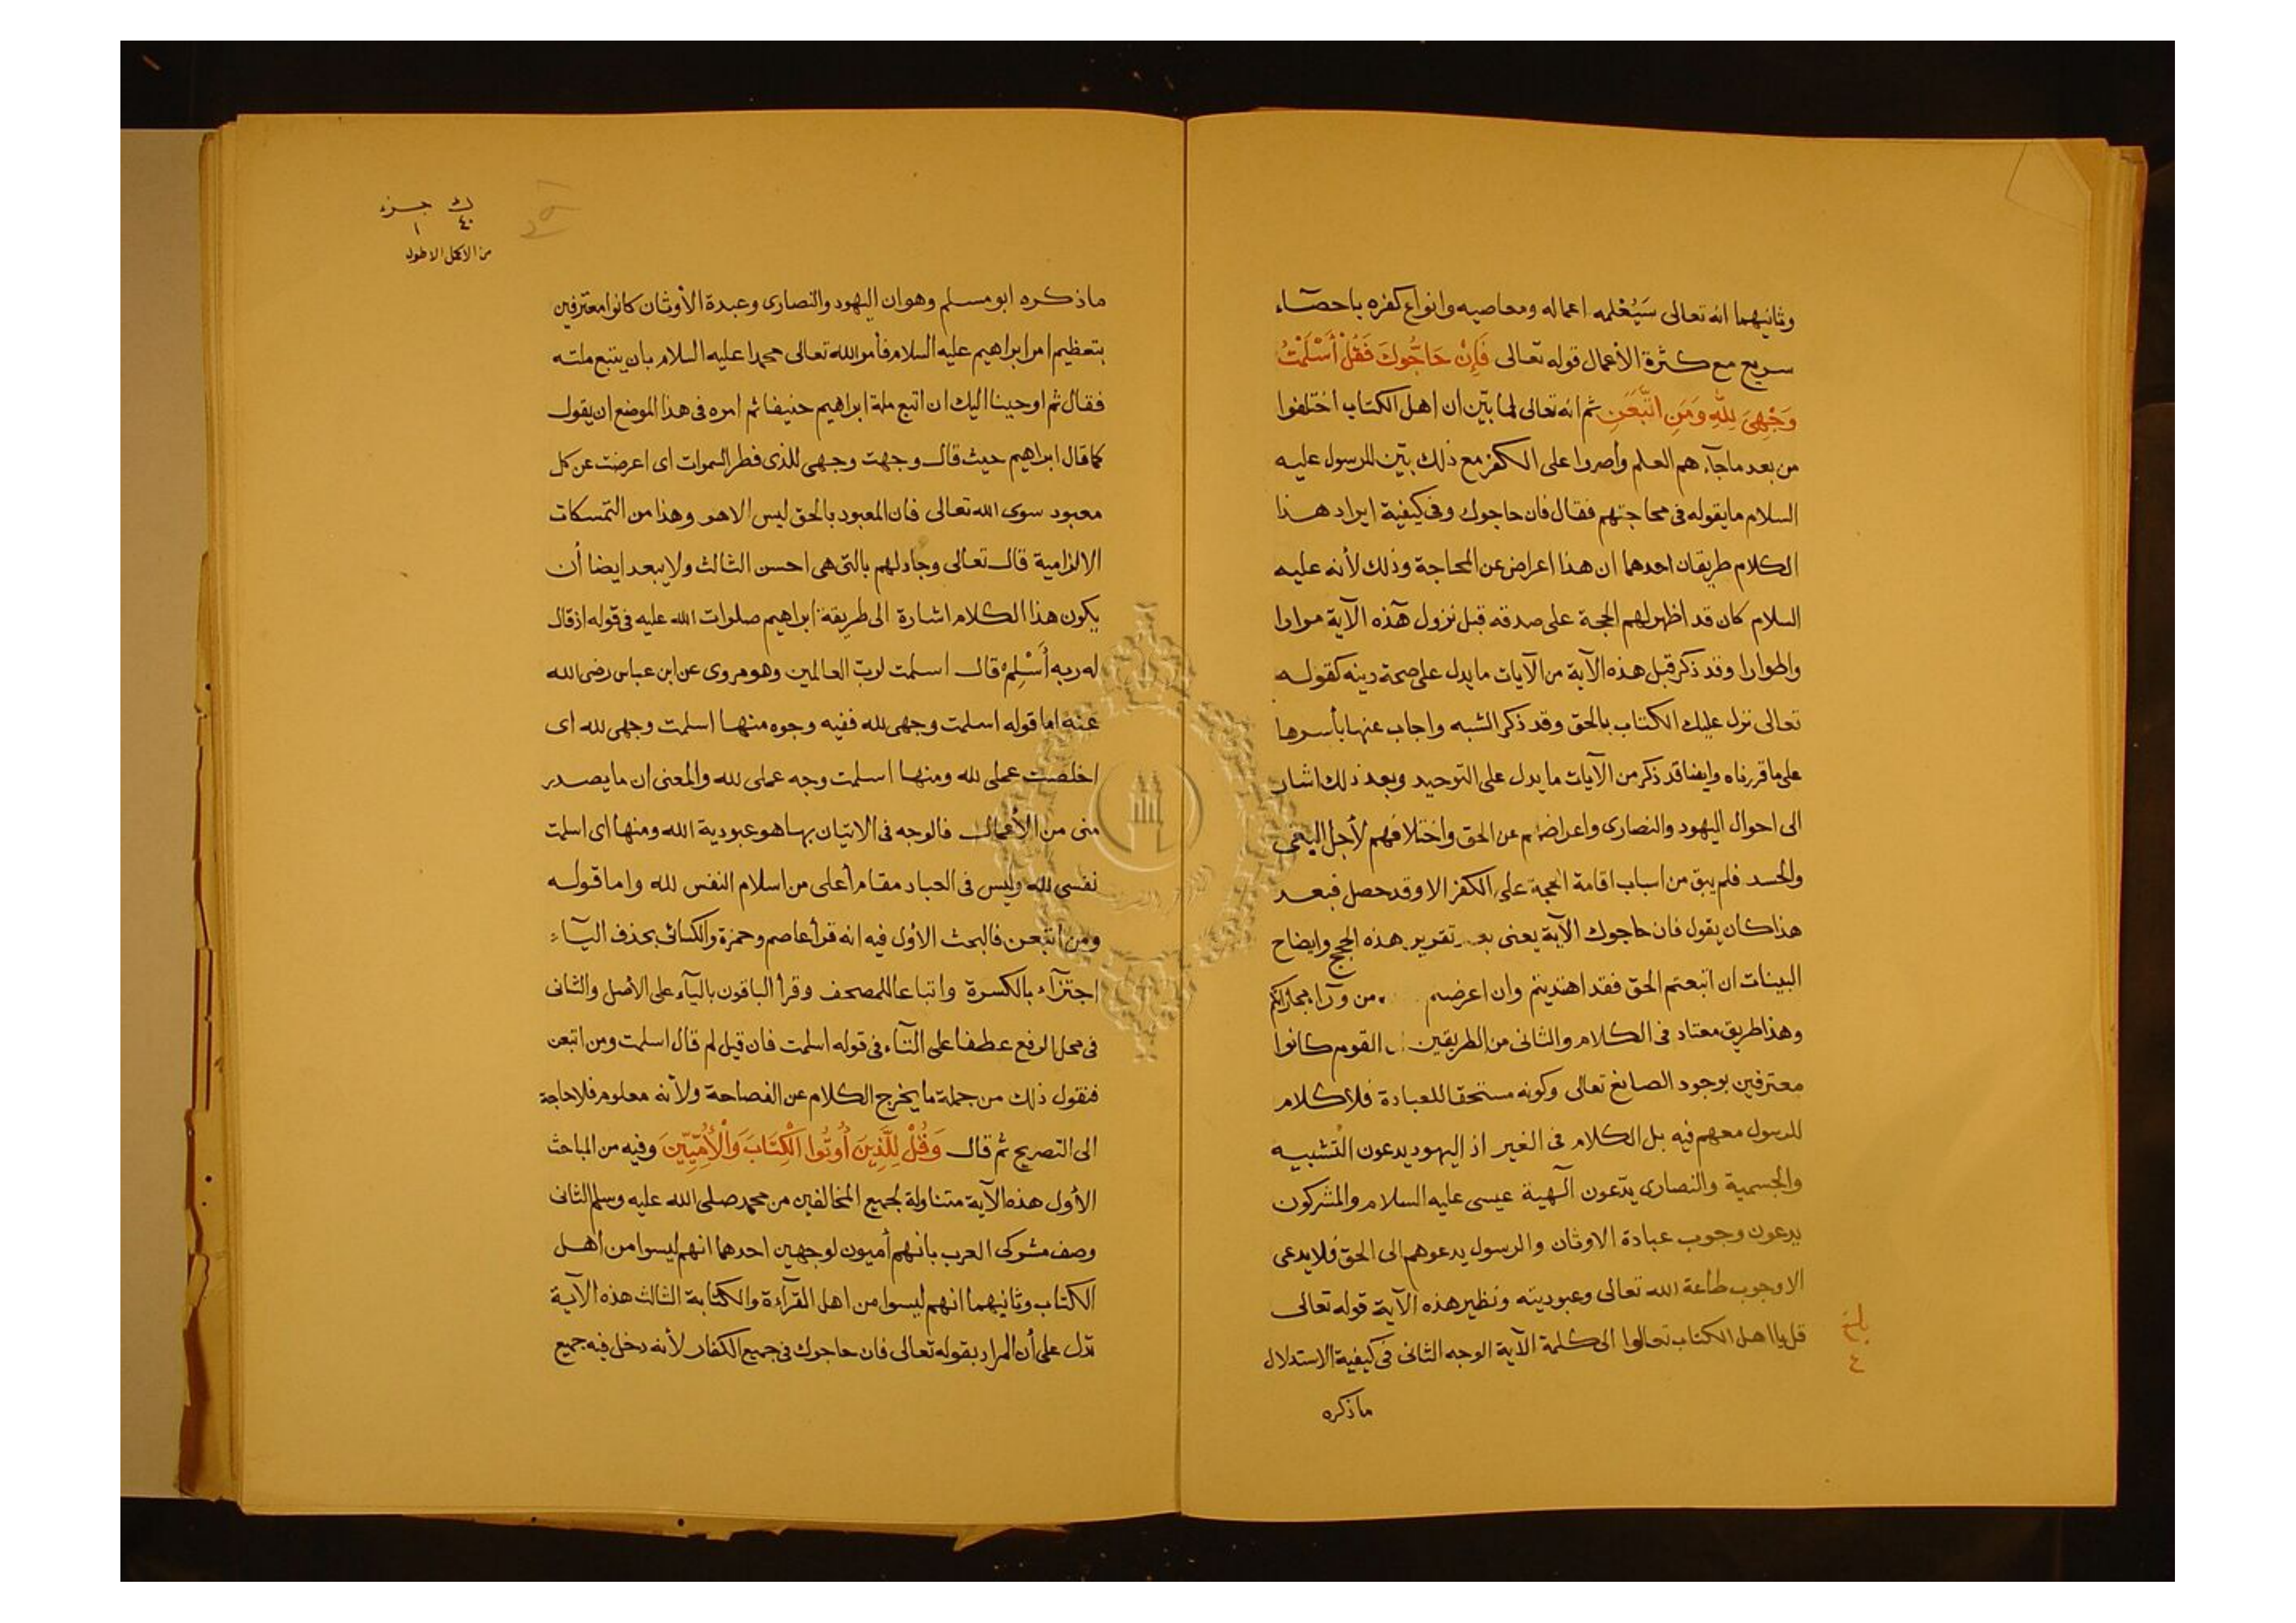 وثانيهما انه تعالى سَيُعْلمه اعماله ومعاصيه وانواع كفره باحصآء
سريع مع كثرة الأعمال قوله تعالى فَإِنْ حَاجُّوكَ فَقُلْ أَسْلَمْتُ
وَجْهِىَ لِلَّهِ وَمَنِ اتَّبَعَنِ ثم انه تعالى لما بيّن ان اهل الكتاب اختلفوا
من بعد ماجآءهم العلم وأصروا على الكفر مع ذلك بيّن للرسول عليه
السلام مايقوله فى محاجتهم فقال فان حاجوك وفى كيفية ايراد هذا
الكلام طريقان احدهما ان هذا اعراض عن المحاجة وذلك لأنه عليه
السلام كان قد اظهر لهم الحجة على صدقه قبل نزول هذه الآية مرارا
واطوارا وقد ذكر قبل هذه الآية من الآيات مايدل على صحة دينه كقوله
تعالى نزل عليك الكتاب بالحق وقد ذكر الشبه واجاب عنها بأسرها
على ماقررناه وايضا قد ذكر من الآيات مايدل على التوحيد وبعد ذلك اشار
الى احوال اليهود والنصارى واعراضهم عن الحق واختلافهم لأجل البغى
والحسد فلم يبق من اسباب اقامة الحجة على الكفر الا وقد حصل فبعد
هذا كان يقول فان حاجوك الآية يعنى بعد تقرير هذه الحجج وايضاح
البينات ان اتبعتم الحق فقد اهتديتم وان اعرضتم من ورآء مجازاتكم
وهذا طريق معتاد فى الكلام والثانى من الطريقين القوم كانوا
معترفين بوجود الصانع تعالى وكونه مستحقا للعبادة فلا كلام
للرسول معهم فيه بل الكلام فى الغير اذ اليهود يدعون التشبيه
والجسمية والنصارى يدّعون آلهية عيسى عليه السلام والمشركون
يدعون وجوب عبادة الاوثان والرسول يدعوهم الى الحق فلا يدعى
الا وجوب طاعة الله تعالى وعبوديته ونظير هذه الآية قوله تعالى
قل يااهل الكتاب تعالوا الى كلمة الآية الوجه الثانى فى كيفية الاستدلال
ماذكره
٤
ك جزء
٤٠ ١
من الاكمل الاطول
ماذكره ابو مسلم وهو ان اليهود والنصارى وعبدة الأوثان كانوا معترفين
بتعظيم امر ابراهيم عليه السلام فأمر الله تعالى محمدا عليه السلام بان يتبع ملته
فقال ثم اوحينا اليك ان اتبع ملة ابراهيم حنيفا ثم امره فى هذا الموضع ان يقول
كما قال ابراهيم حيث قال وجهت وجهى للذى فطر السموات اى اعرضت عن كل
معبود سوى الله تعالى فان المعبود بالحق ليس الا هو وهذا من التمسكات
الالزامية قال تعالى وجادلهم بالتى هى احسن الثالث ولا يبعد ايضا أن
يكون هذا الكلام اشارة الى طريقة ابراهيم صلوات الله عليه فى قوله اذ قال
له ربه أَسْلِمْ قال اسلمت لربّ العالمين وهو مروى عن ابن عباس رضى الله
عنه اما قوله اسلمت وجهى لله ففيه وجوه منها اسلمت وجهى لله اى
اخلصت عملى لله ومنها اسلمت وجه عملى لله والمعنى ان مايصدر
منى من الأعمال فالوجه فى الاتيان بها هو عبودية الله ومنها اى اسلمت
نفسى لله وليس فى العباد مقام أعلى من اسلام النفس لله واما قوله
ومن اتبعن فالبحث الأول فيه انه قرأ عاصم وحمزة والكسائى بحذف اليآء
اجتزآء بالكسرة واتباعا للمصحف وقرأ الباقون باليآء على الأصل والثانى
فى محل الرفع عطفا على التآء فى قوله اسلمت فان قيل لم قال اسلمت ومن اتبعن
فنقول ذلك من جملة مايخرج الكلام عن الفصاحة ولأنه معلوم فلا حاجة
الى التصريح ثم قال وَقُلْ لِلَّذِينَ أُوتُوا الْكِتَابَ وَالْأُمِّيِّينَ وفيه من المباحث
الأول هذه الآية متناولة لجميع المخالفين من محمد صلى الله عليه وسلم الثانى
وصف مشركى العرب بانهم أميون لوجهين احدهما انهم ليسوا من اهل
الكتاب وثانيهما انهم ليسوا من اهل القرآءة والكتابة الثالث هذه الآية
تدل على أن المراد بقوله تعالى فان حاجوك فى جميع الكفار لأنه دخل فيه جميع